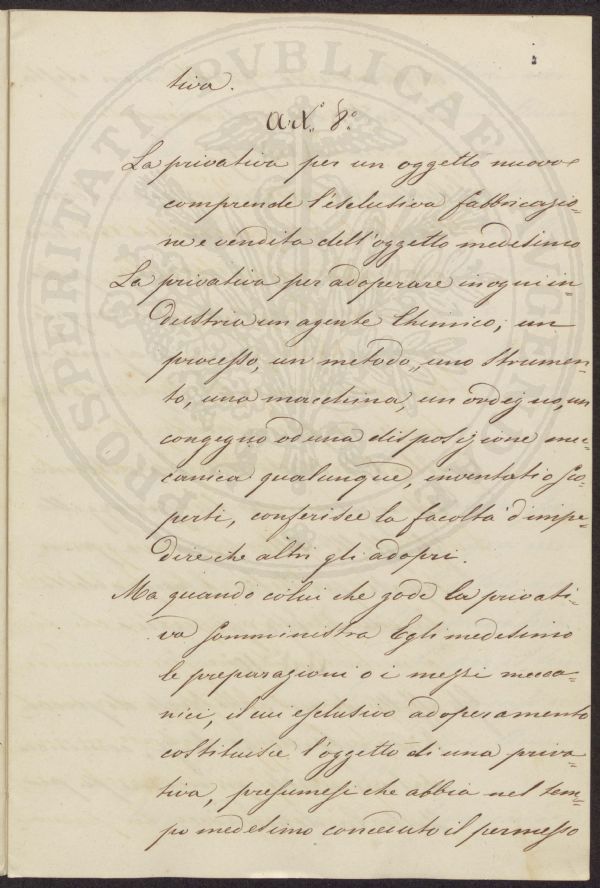 tiva.
Art.° 8.°
La privativa per un oggetto nuovo
comprende l'esclusiva fabbricazio=
ne e vendita dell'oggetto medesimo
La privativa per adoperare in ogni in=
dustria un agente Chimico, un
processo, un metodo, uno strumen=
to, una macchina, un ordegno, un
congegno od una disposizione mec=
canica qualunque, inventati o sco=
perti, conferisce la facoltà d'impe=
dire che altri gli adopri.
Ma quando colui che gode la privati=
va somministra Egli medesimo
le preparazioni o i mezzi mecca=
nici, il cui esclusivo adoperamento
costituisce l'oggetto di una priva=
tiva, presumesi che abbia nel tem=
po medesimo conceduto il permesso
PROSPERITATI PVBLICAE AVGENDAE